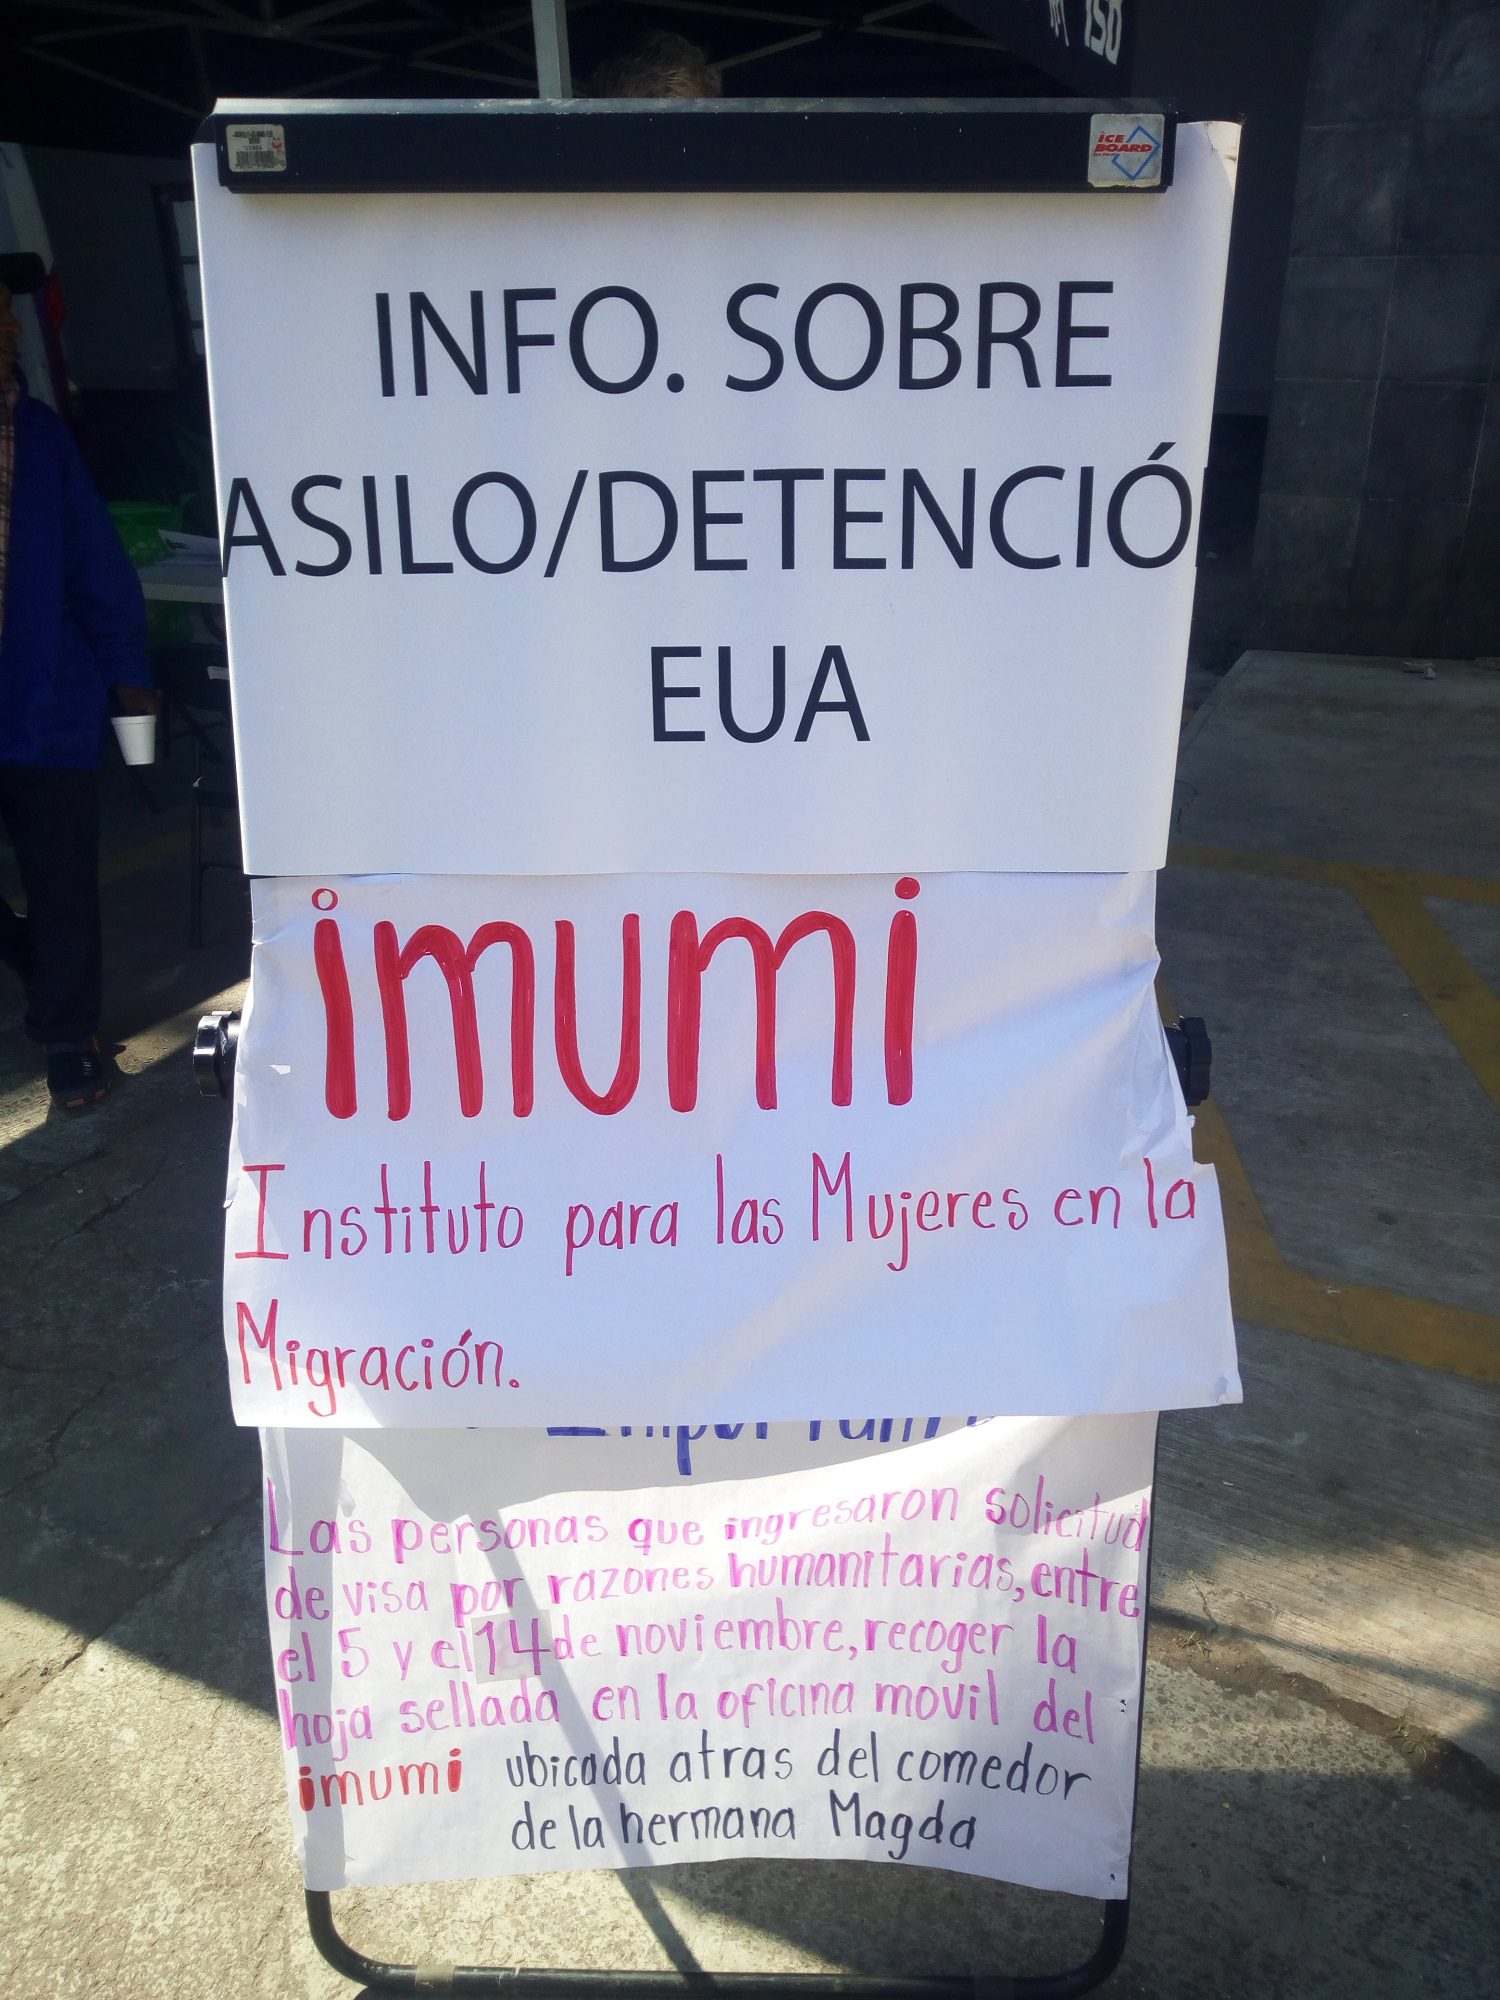 ICE
BOARD
INFO. SOBRE
ASILO/DETENCIÓ
EUA
imumi
Instituto para las Mujeres en la
Migración.
Las personas que ingresaron solicitud
de visa por razones humanitarias, entre
el 5 y el 14 de noviembre, recoger la
hoja sellada en la oficina movil del
imumi ubicada atras del comedor
de la hermana Magda